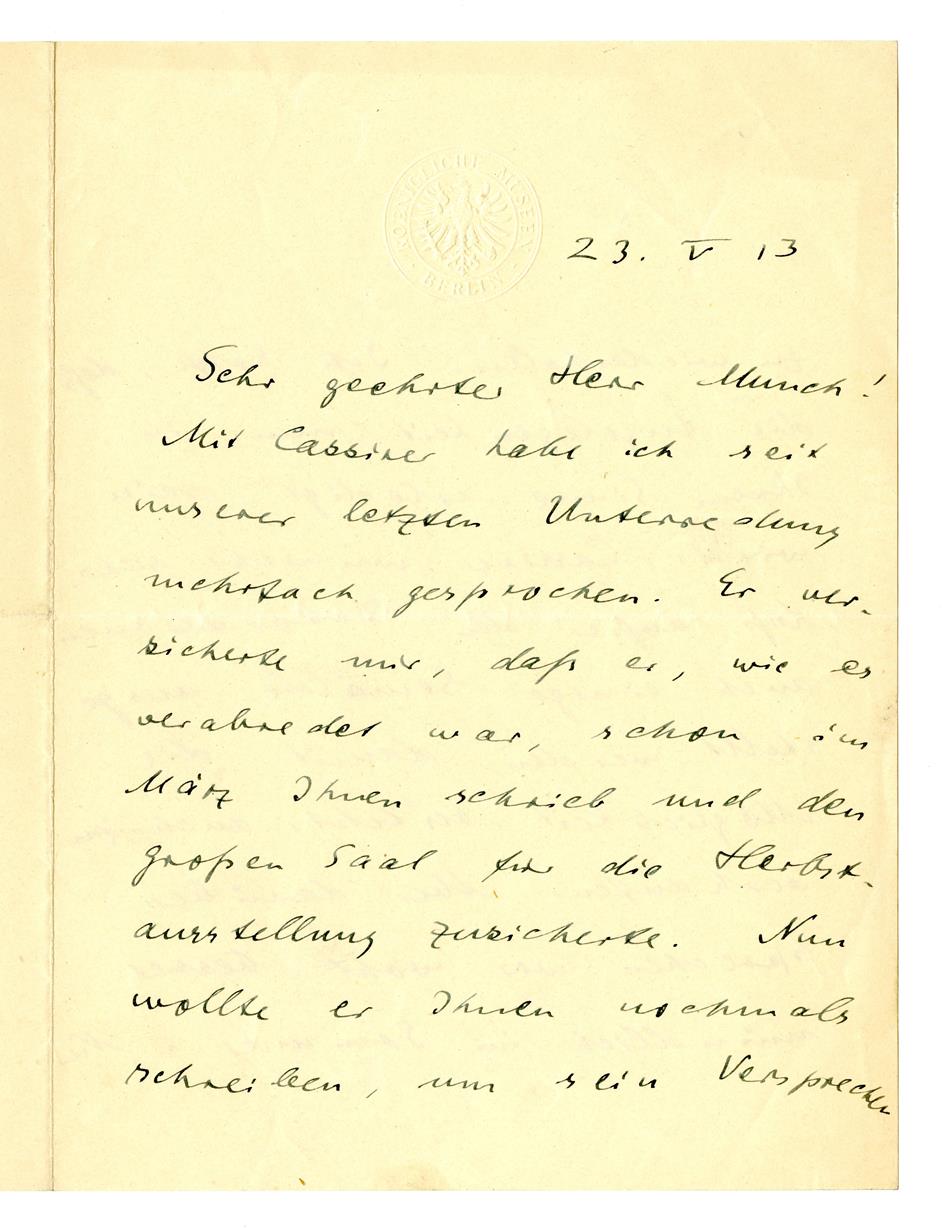 KOENIGLICHE MUSEEN
BERLIN
23. V 13
Sehr geehrter Herr Munch!
Mit Cassirer habe ich seit
unserer letzten Unterredung
mehrfach gesprochen. Er ver-
sicherte mir, daß er, wie es
verabredet war, schon im
März Ihnen schrieb und den
großen Saal für die Herbst-
ausstellung zusicherte. Nun
wollte er Ihnen nochmals
schreiben, um sein Versprechen